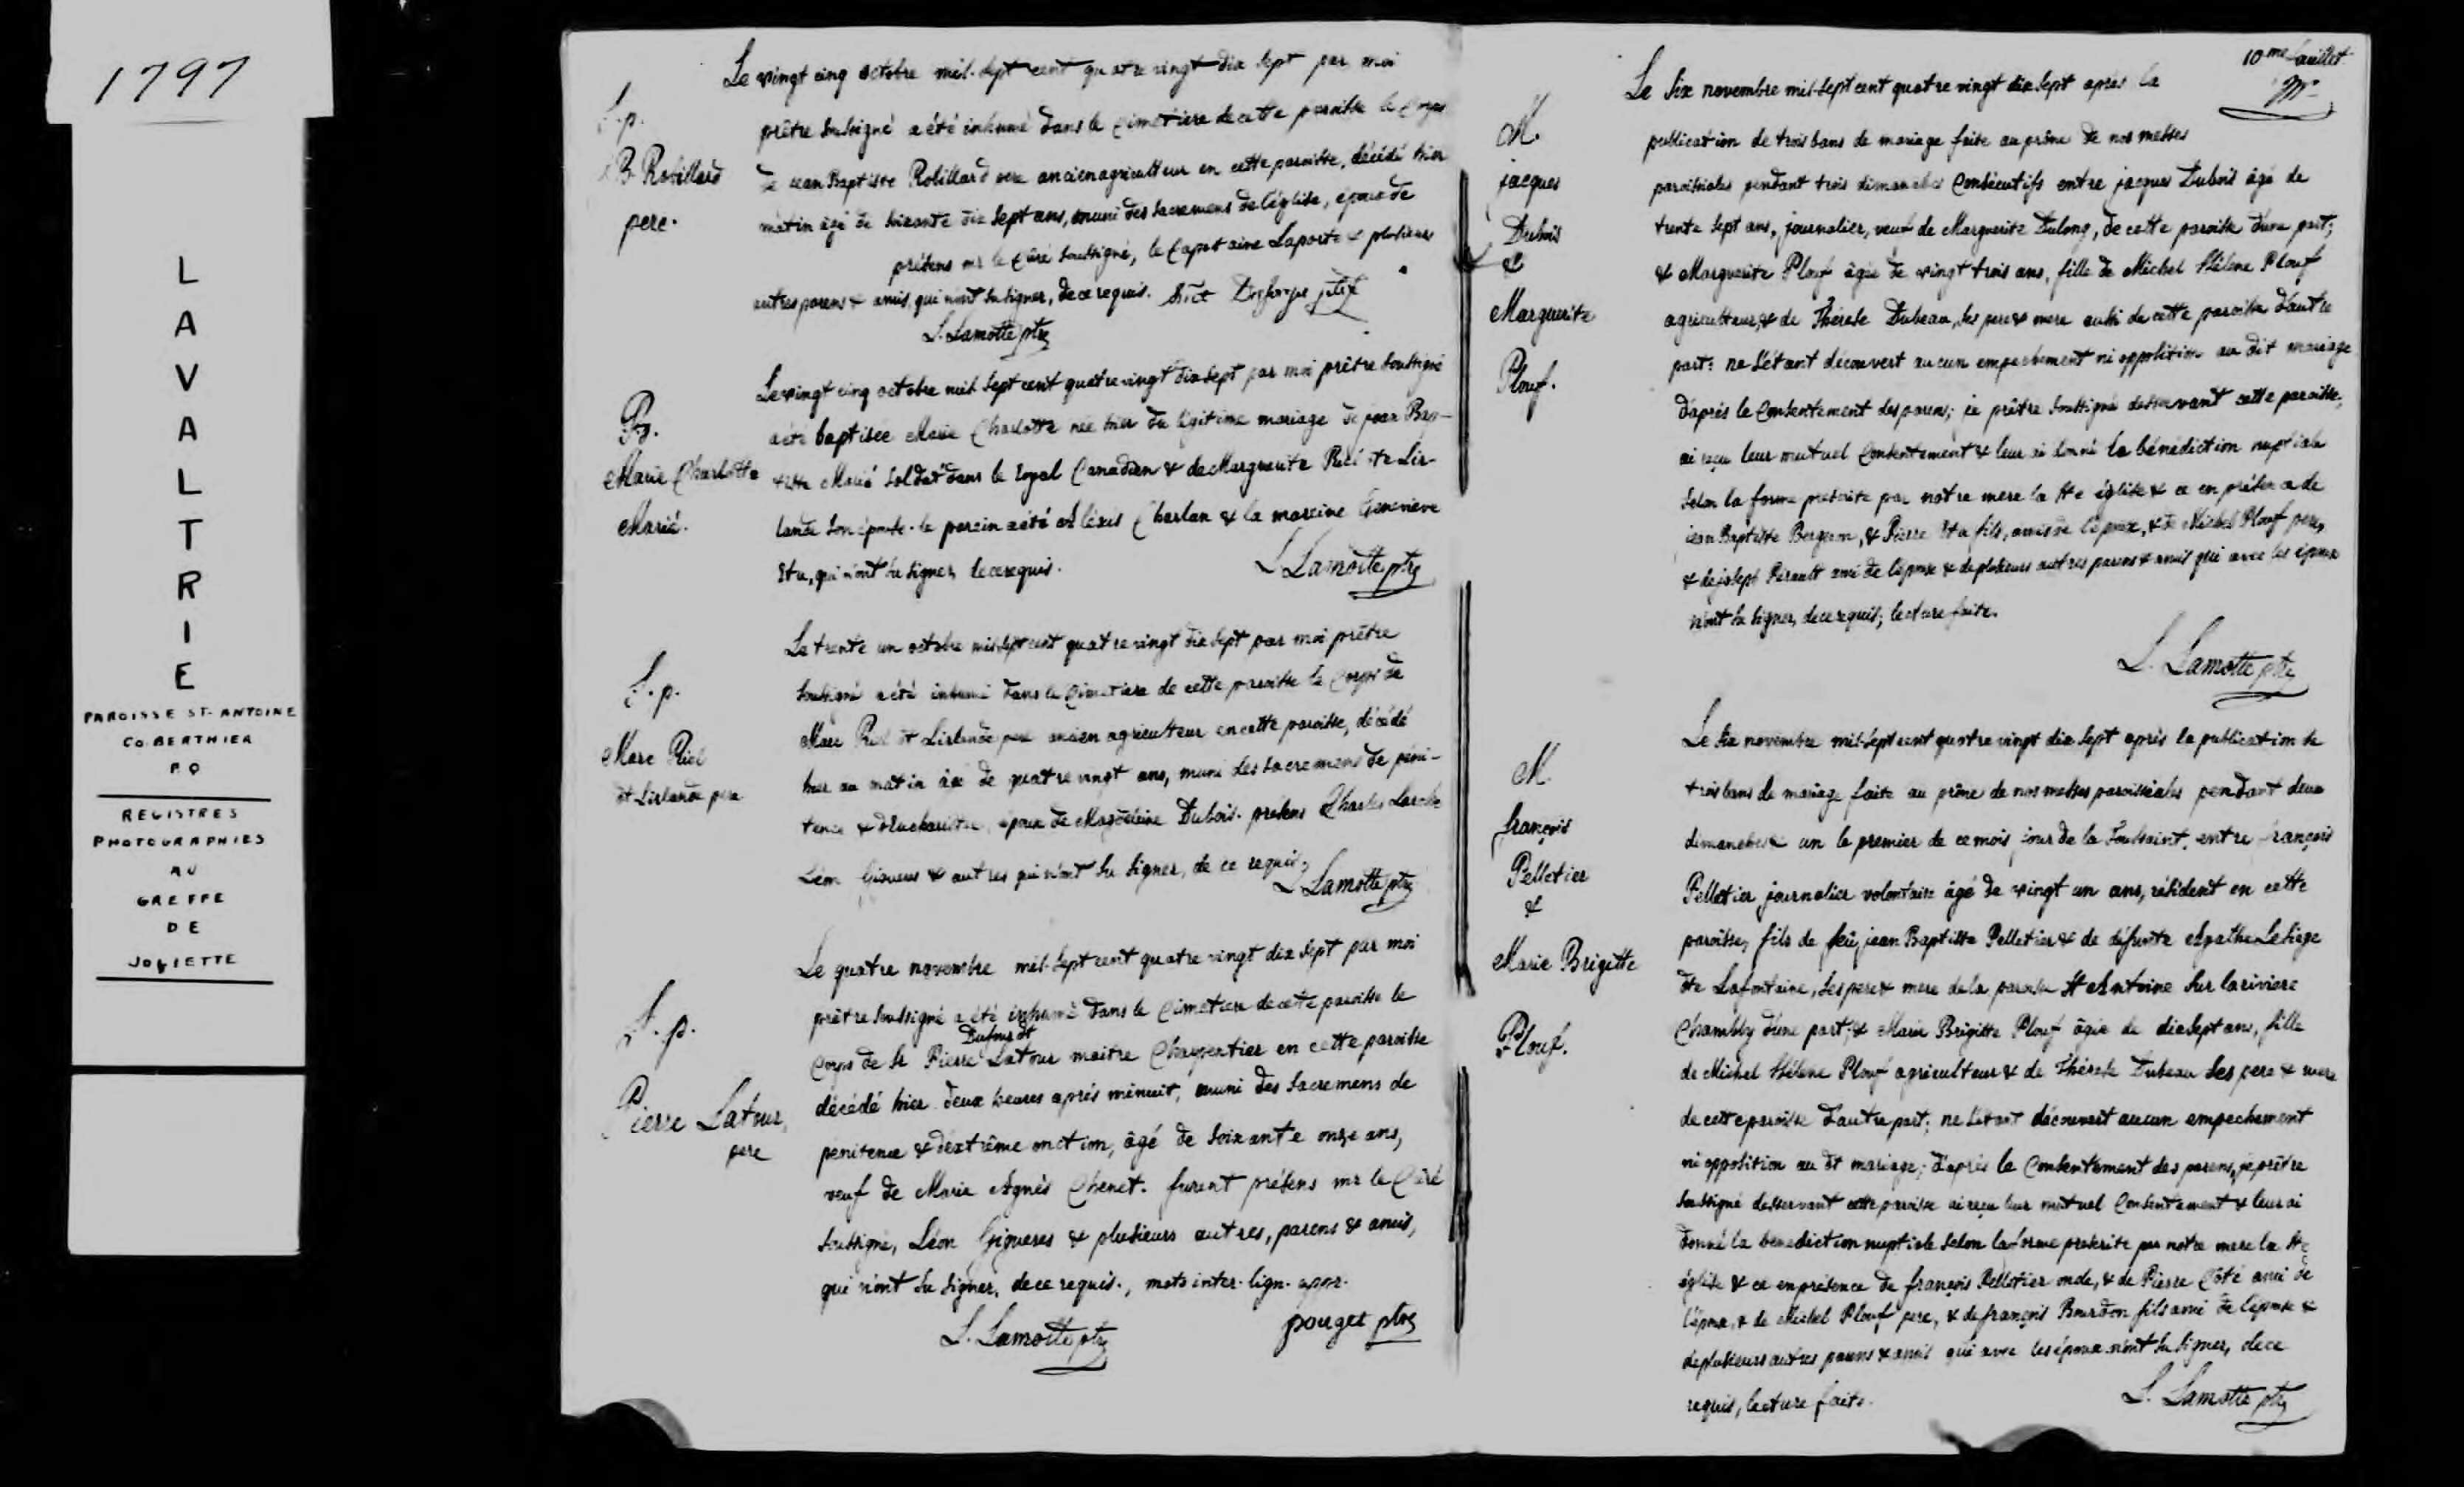 1797
L
A
V
A
L
T
R
I
E
PAROISSE ST-ANTOINE
CO. BERTHIER
P Q
REGISTRES
PHOTOGRAPHIES
AU
GREFFE
DE
JOLIETTE
Le vingt cinq octobre mil-sept cent quatre vingt dix sept par moi
prêtre soussigné a été inhumé dans le cimetiere de cette paroisse le corps
de jean Baptiste Robillard pere ancien agriculteur en cette paroisse, décédé hier
matin âgé de soixante dix sept ans, muni des sacremens de l'église, époux de
présens mr le Curé soussigné, le Capitaine Laporte & plusieurs
autres parens & amis, qui n'ont su signer, de ce requis.
L. Lamotte ptre
S. p.
B. Robillard
pere.
Le vingt cinq octobre mil sept cent quatre vingt dix sept par moi prêtre soussigné
a été baptisée Marie Charlotte née hier du légitime mariage de jean Bap-
tiste Marié soldat dans le royal Canadien & de Marguerite Riel dt Lir-
lande son épouse. le parein a été Aléxis Charlan & la mareine Genevieve
Etu, qui n'ont su signer, de ce requis.
L Lamotte ptre
B.
Marie Charlotte
Marié.
Le trente un octobre mil sept cent quatre vingt dix sept par moi prêtre
soussigné a été inhumé dans le cimetiere de cette paroisse le corps de
Marc Riel dt Lirlande pere ancien agriculteur en cette paroisse, décédé
hier au matin âgé de quatre vingt ans, muni des sacremens de péni-
tence & d'eucharistie, époux de Magdeleine Dubois. présens Charles
Léon Gigueres & autres qui n'ont su signer, de ce requis.
L Lamotte ptre
S. p.
Marc Riel
dt Lirlande pere
Le quatre novembre mil-sept cent quatre vingt dix sept par moi
prêtre soussigné a été inhumé dans le cimetiere de cette paroisse le
Dufour dt
corps de Sr Pierre Latour maitre Charpentier en cette paroisse
décédé hier deux heures après minuit, muni des sacremens de
penitence & d'extrême onction, âgé de soixante onze ans,
veuf de Marie Agnès Chenet. furent présens mr le Curé
soussigné, Léon Gigueres & plusieurs autres, parens & amis,
qui n'ont su signer, de ce requis., mots inter-lign. appr.
L. Lamotte ptre
pouget ptre
S. p.
Pierre Latour,
pere
10me feuillet
Le six novembre mil-sept cent quatre vingt dix sept après la
publication de trois bans de mariage faite au prône de nos messes
paroissiales pendant trois dimanches consécutifs entre jacques Dubois âgé de
trente sept ans, journalier, veuf de Marguerite Dulong, de cette paroisse d'une part;
& Marguerite Plouf âgée de vingt trois ans, fille de Michel Hélene Plouf
agriculteur, & de Thérese Dubeau, ses pere & mere aussi de cette paroisse d'autre
part: ne s'étant découvert aucun empechement ni opposition au dit mariage
d'après le consentement des parens; je prêtre soussigné desservant cette paroisse,
ai reçu leur mutuel consentement & leur ai donné la bénédiction nuptiale
selon la forme prescrite par notre mere la Ste église & ce en présence de
jean Baptiste Bergeron, & Pierre Etu fils, amis de l'époux, & de Michel Plouf pere,
& de joseph Perault ami de l'épouse & de plusieurs autres parens & amis qui avec les époux
n'ont su signer, de ce requis; lecture faite.
L. Lamotte ptre
M.
jacques
Dubois
&
Marguerite
Plouf.
Le six novembre mil-sept cent quatre vingt dix sept après la publication de
trois bans de mariage faite au prône de nos messes paroissiales pendant deux
dimanches & un le premier de ce mois jour de la Toussaint, entre françois
Pelletier journalier volontaire âgé de vingt un ans, résident en cette
paroisse, fils de feu, jean Baptiste Pelletier & de défunte Agathe Lesiege
dte Lafontaine, ses pere & mere de la paroisse St Antoine sur la riviere
Chambly d'une part; & Marie Brigitte Plouf âgée de dix sept ans, fille
de Michel Hélene Plouf agriculteur & de Thérese Dubeau ses pere & mere
de cette paroisse d'autre part; ne s'étant découvert aucun empechement
ni opposition au dt mariage; d'après le consentement des parens, je prêtre
soussigné desservant cette paroisse ai reçu leur mutuel consentement & leur ai
donné la bénédiction nuptiale selon la forme prescrite par notre mere la Ste
église & ce en présence de françois Pelletier oncle, & de Pierre Côté ami de
l'époux, & de Michel Plouf pere, & de françois Bourdon fils ami de l'épouse &
de plusieurs autres parens & amis qui avec les époux n'ont su signer, de ce
requis, lecture faite.
L. Lamotte ptre
M.
françois
Pelletier
&
Marie Brigitte
Plouf.